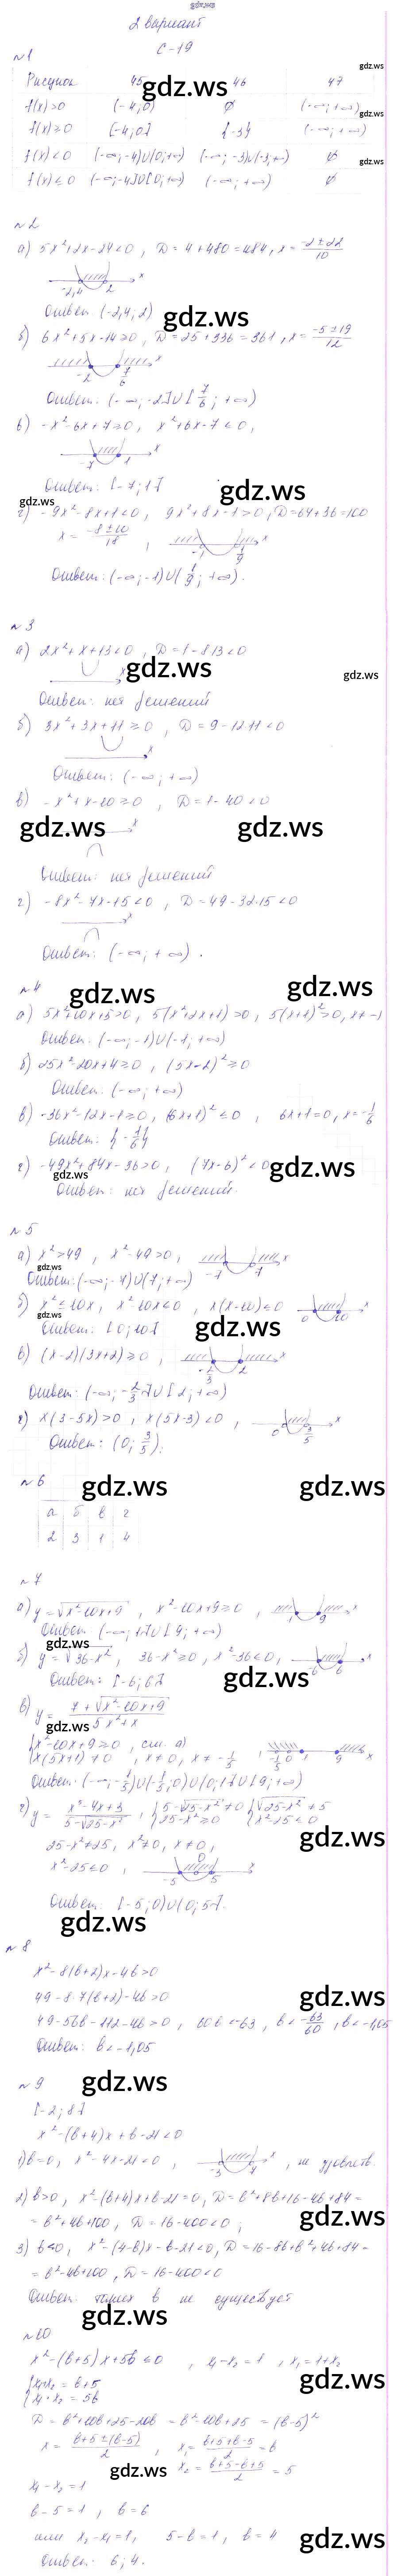 gdz.ws
2 вариант
С-19
№1
Рисунок 45 46 47
f(x)>0 (-4;0) ∅ (-∞;+∞)
f(x)≥0 [-4;0] {-3} (-∞;+∞)
f(x)<0 (-∞;-4)∪(0;+∞) (-∞;-3)∪(-3;+∞) ∅
f(x)≤0 (-∞;-4]∪[0;+∞) (-∞;+∞) ∅
№2
а) 5x²+2x-24<0, D=4+480=484, x=(-2±22)/10
-2,4 2 x
Ответ: (-2,4; 2)
б) 6x²+5x-14≥0, D=25+336=361, x=(-5±19)/12
-2 7/6 x
Ответ: (-∞;-2]∪[7/6;+∞)
в) -x²-6x+7≥0, x²+6x-7≤0,
-7 1 x
Ответ: [-7;1]
г) -9x²-8x+1<0, 9x²+8x-1>0, D=64+36=100
x=(-8±10)/18, -1 1/9 x
Ответ: (-∞;-1)∪(1/9;+∞).
№3
а) 2x²+x+13<0, D=1-8·13<0
x
Ответ: нет решений
б) 3x²+3x+11≥0, D=9-12·11<0
x
Ответ: (-∞;+∞)
в) -x²+x-10≥0, D=1-40<0
x
Ответ: нет решений
г) -8x²-7x-15<0, D=49-32·15<0
x
Ответ: (-∞;+∞).
№4
а) 5x²+10x+5>0, 5(x²+2x+1)>0, 5(x+1)²>0, x≠-1
Ответ: (-∞;-1)∪(-1;+∞)
б) 25x²-20x+4≥0, (5x-2)²≥0
Ответ: (-∞;+∞)
в) -36x²-12x-1≥0, (6x+1)²≤0, 6x+1=0, x=-1/6
Ответ: {-1/6}
г) -49x²+84x-36>0, (7x-6)²<0
Ответ: нет решений.
№5
а) x²>49, x²-49>0, -7 7 x
Ответ: (-∞;-7)∪(7;+∞)
б) x²≤10x, x²-10x≤0, x(x-10)≤0 0 10 x
Ответ: [0;10]
в) (x-2)(3x+2)≥0, -2/3 2 x
Ответ: (-∞;-2/3]∪[2;+∞)
г) x(3-5x)>0, x(5x-3)<0, 0 3/5 x
Ответ: (0; 3/5).
№6
а б в г
2 3 1 4
№7
а) y=√(x²-10x+9), x²-10x+9≥0, 1 9 x
Ответ: (-∞;1]∪[9;+∞)
б) y=√(36-x²), 36-x²≥0, x²-36≤0, -6 6 x
Ответ: [-6;6]
в) y=(7+√(x²-10x+9))/(5x²+x)
{x²-10x+9≥0, см. а)
{x(5x+1)≠0, x≠0, x≠-1/5 -1/5 0 1 9 x
Ответ: (-∞;-1/5)∪(-1/5;0)∪(0;1]∪[9;+∞)
г) y=(x³-4x+3)/(5-√(25-x²)), {5-√(25-x²)≠0 {√(25-x²)≠5
{25-x²≥0 {x²-25≤0
25-x²≠25, x²≠0, x≠0,
x²-25≤0, -5 0 5 x
Ответ: [-5;0)∪(0;5].
№8
x²-8(b+2)x-4b>0
49-8·7(b+2)-4b>0
49-56b-112-4b>0, 60b<-63, b<-63/60, b<-1,05
Ответ: b<-1,05
№9
[-2;8]
x²-(b+4)x+b-21<0
1) b=0, x²-4x-21<0, -3 7 x, не удовлетв.
2) b>0, x²-(b+4)x+b-21=0, D=b²+8b+16-4b+84=
=b²+4b+100, D=16-400<0;
3) b<0, x²-(4-b)x-b-21<0, D=16-8b+b²+4b+84=
=b²-4b+100, D=16-400<0
Ответ: таких b не существует
№10
x²-(b+5)x+5b≤0, x₁-x₂=1, x₁=1+x₂
{x₁+x₂=b+5
{x₁·x₂=5b
D=b²+10b+25-20b=b²-10b+25=(b-5)²
x=(b+5±(b-5))/2, x₁=(b+5+b-5)/2=b
x₂=(b+5-b+5)/2=5
x₁-x₂=1
b-5=1, b=6
или x₂-x₁=1, 5-b=1, b=4
Ответ: 6; 4.
gdz.ws